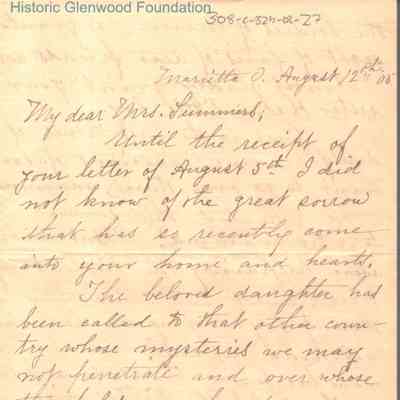 Historic Glenwood Foundation
Marietta O. August 12th 05
My dear Mrs. Summers;
Until the receipt of
your letter of August 5th I did
not know of the great sorrow
that has so recently come
into your home and hearts.
The beloved daughter has
been called to that other coun-
try whose mysteries we may
not penetrate and over whose